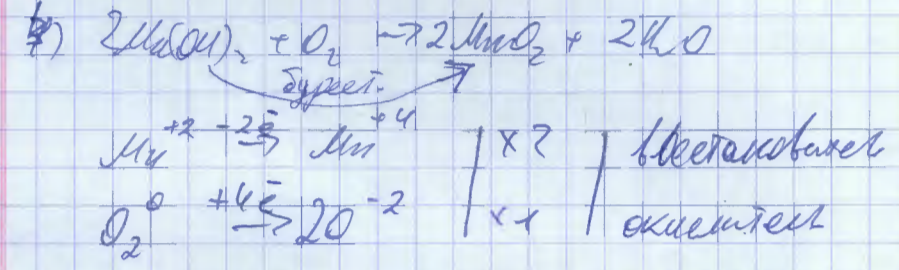 4) 2Mn(OH)₂ + O₂ → 2MnO₂ + 2H₂O
буреет.
Mn⁺² -2ē → Mn⁺⁴ | ×2 | восстановитель
O₂⁰ +4ē → 2O⁻² | ×1 | окислитель